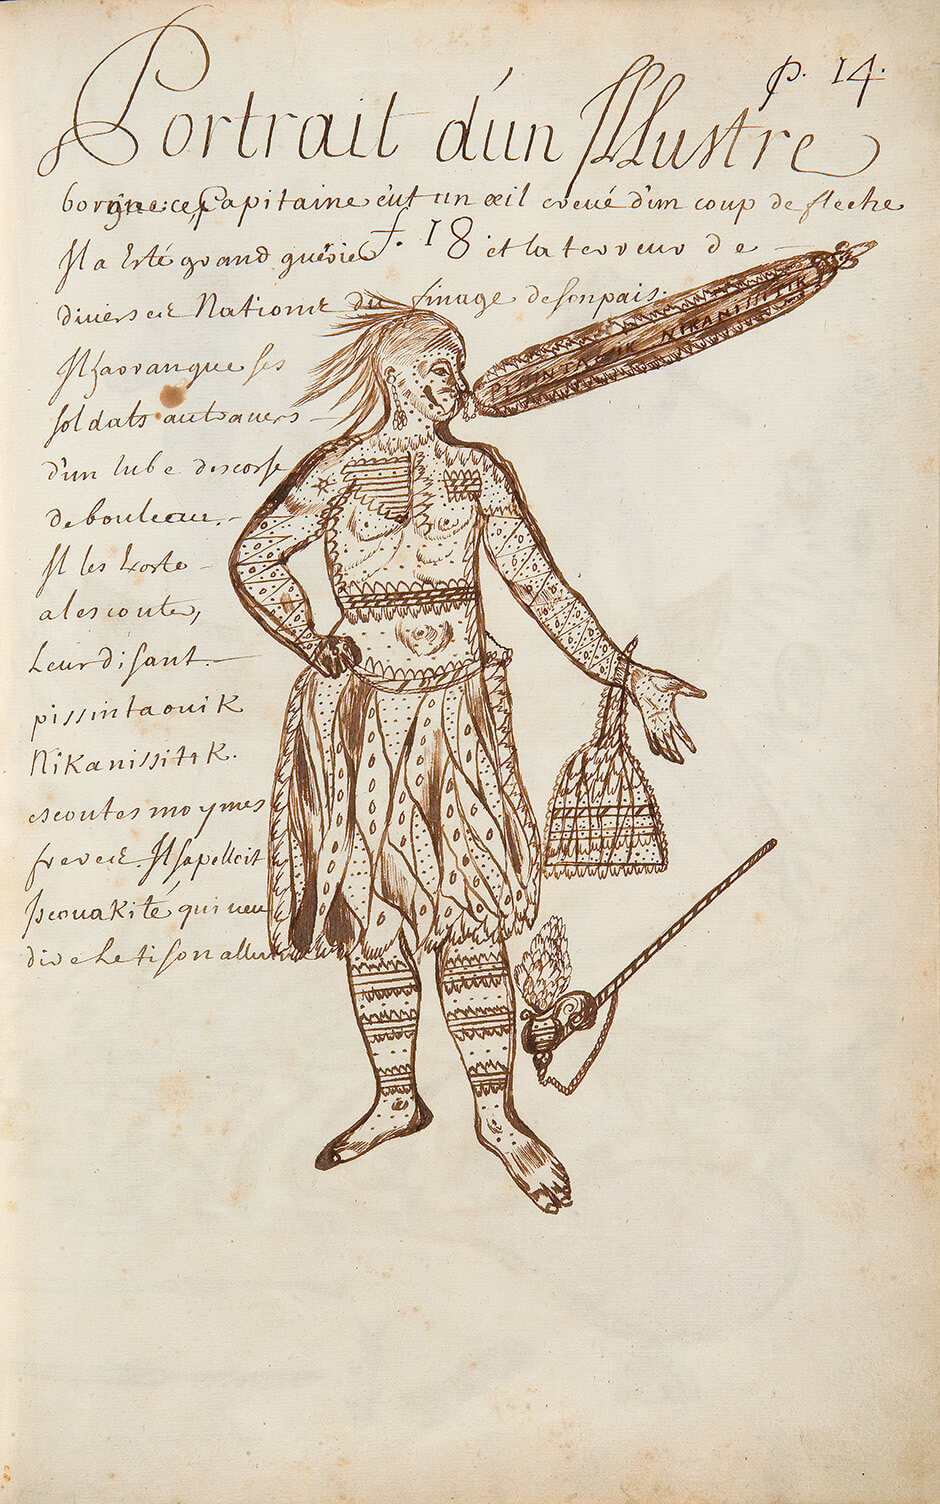 p. 14.
Portrait d'un Illustre
borgne: ce Capitaine eut un œil creué d'un coup de fleche
f. 18
Il a Esté grand guérier et la terreur de
diverses Nations du finage de son païs.
Il haorangue ses
soldats autrauers
d'un tube descorse
de bouleau.
Il les Exorte
a lescouter,
Leur disant.
pissintaouik
Nikanissitik.
escoutes moy mes
freres Il sapelloit
Iscouakité qui ueu
dire Le tison allumé
PISSINTAOUIK NIKANISSITIK